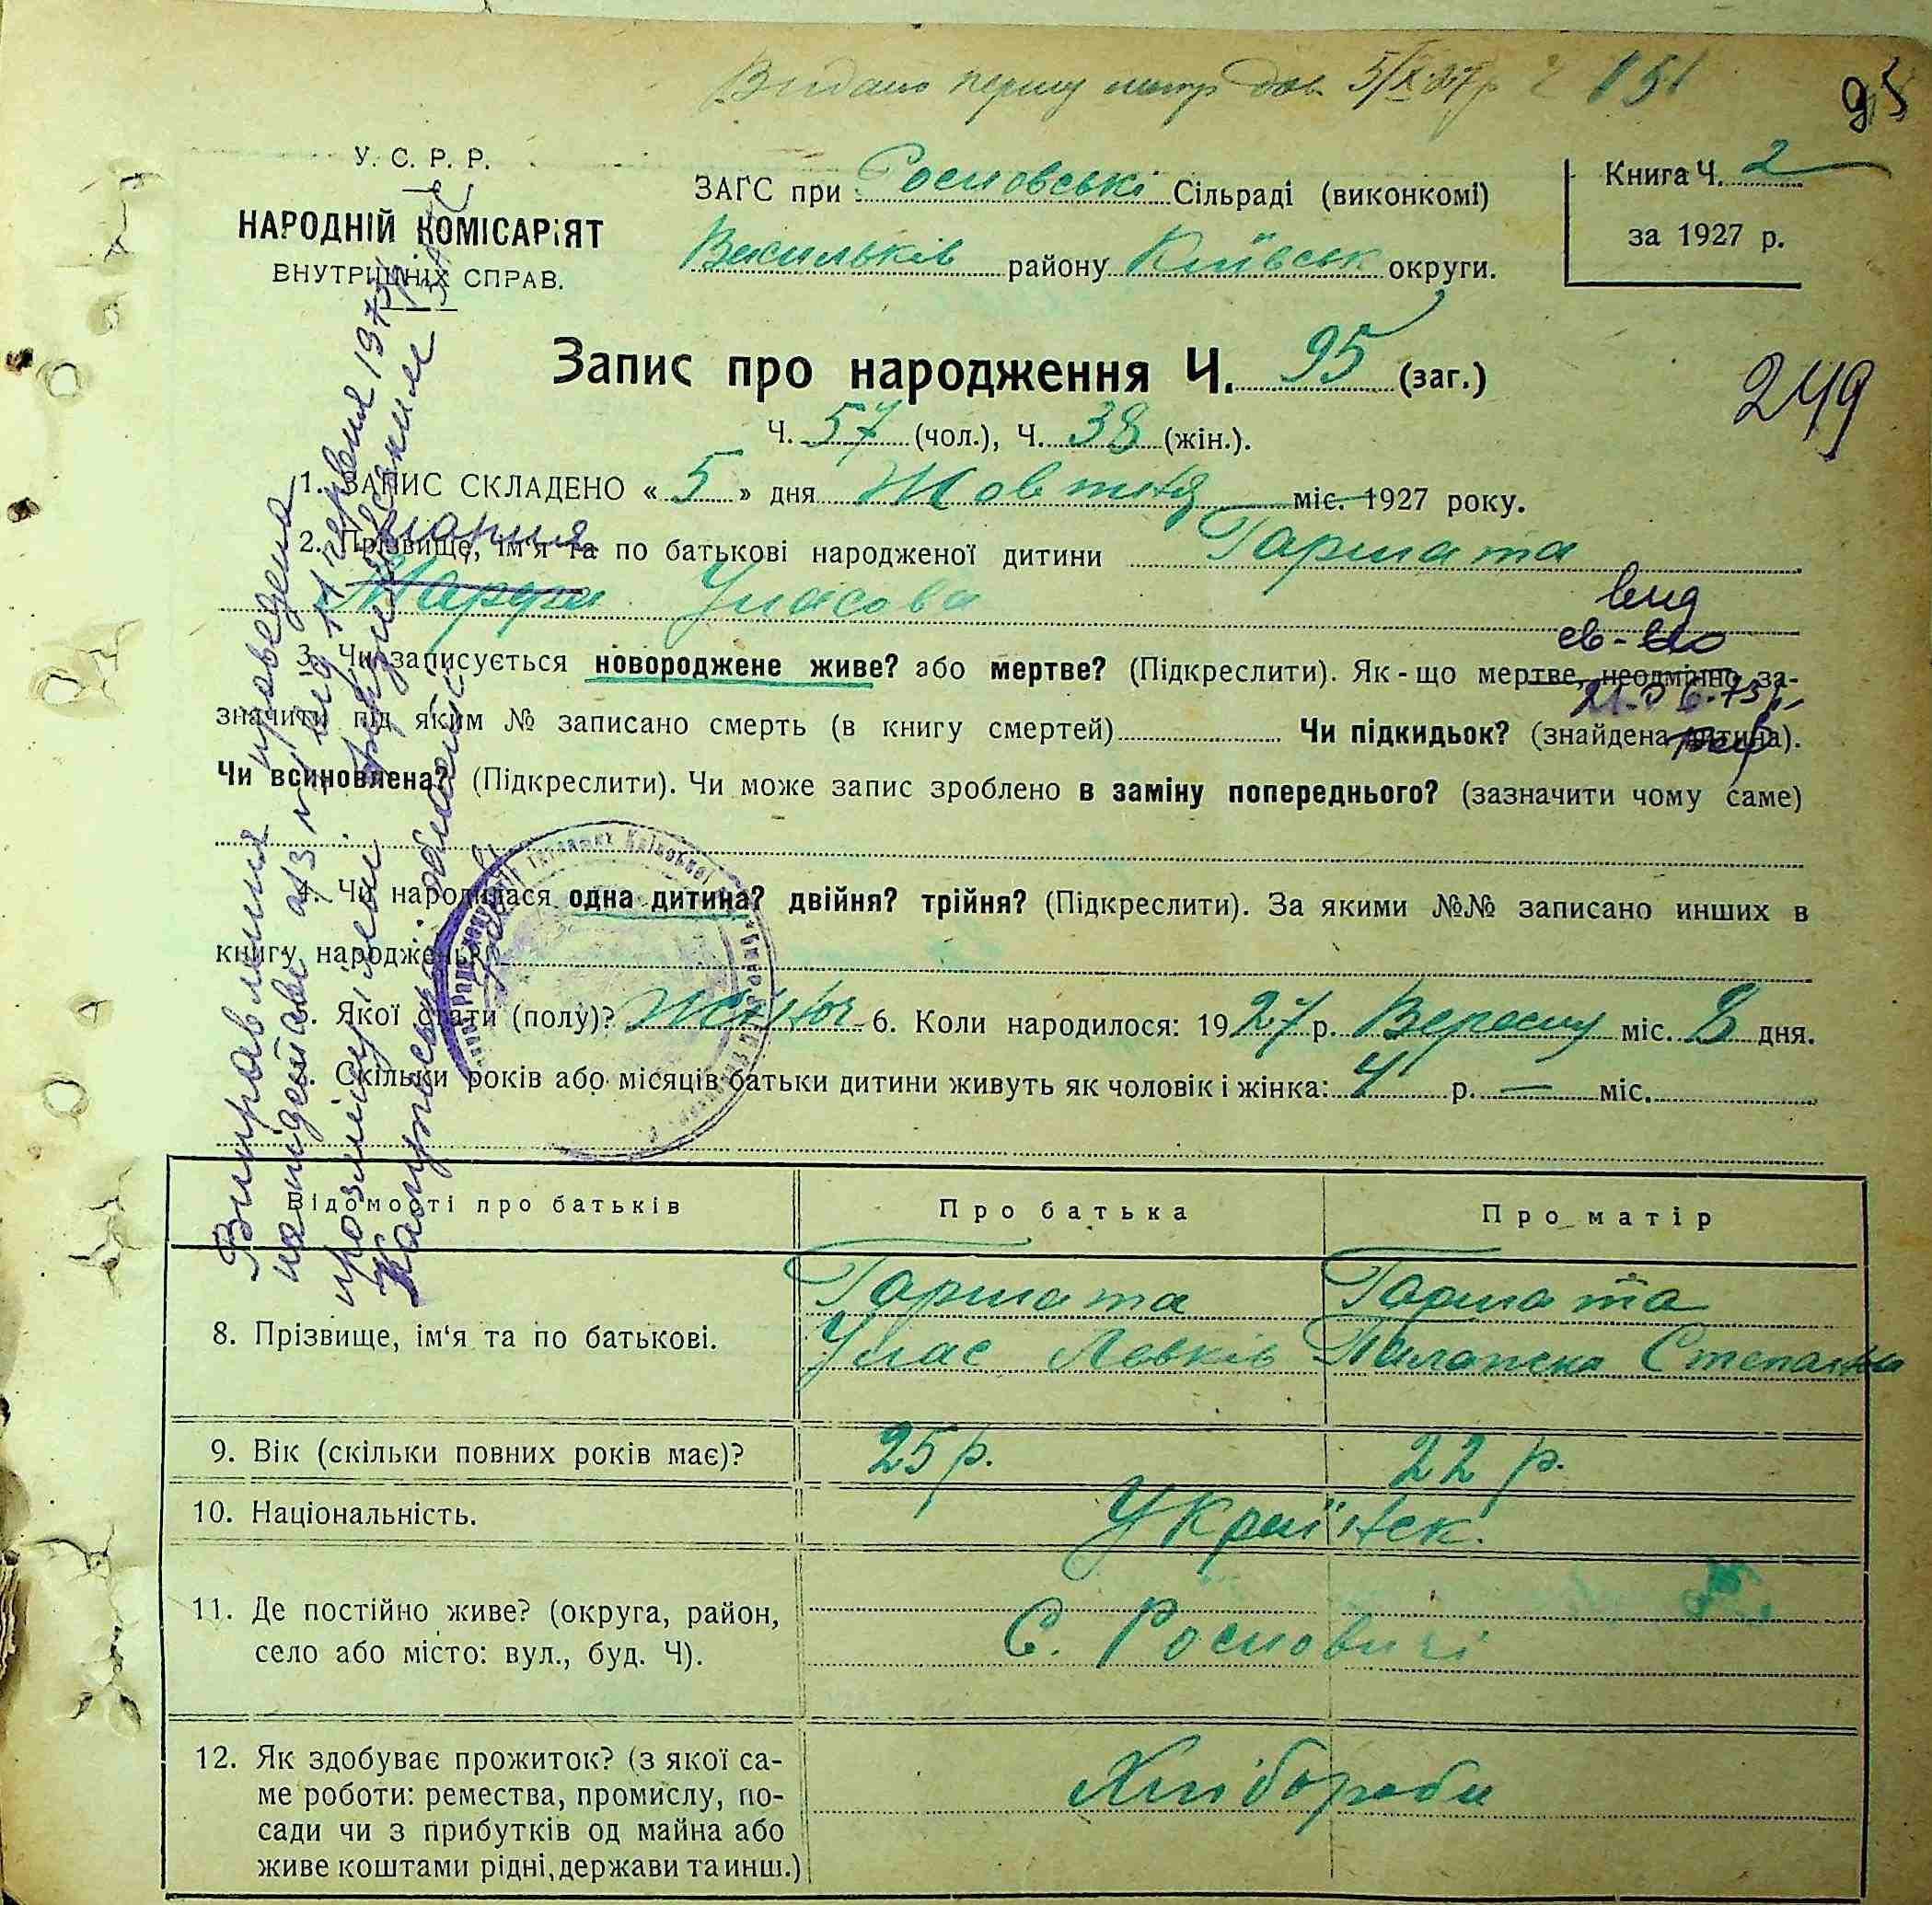 Видано першу 5/X 27 р Ч 151
95
У. С. Р. Р.
НАРОДНІЙ КОМІСАРІЯТ
ВНУТРІШНІХ СПРАВ.
ЗАГС при Росновські Сільраді (виконкомі)
Васильків району Київськ округи.
Книга Ч. 2
за 1927 р.
Запис про народження Ч. 95 (заг.)
249
Ч. 57 (чол.), Ч. 38 (жін.).
1. ЗАПИС СКЛАДЕНО « 5 » дня Жовтня міс. 1927 року.
Мария
2. Прізвище, ім'я та по батькові народженої дитини Гармата
Марфа Уласова
вид
св-во
21.06.73 р.
3. Чи записується новороджене живе? або мертве? (Підкреслити). Як-що мертве, неодмінно за-
значити під яким № записано смерть (в книгу смертей) Чи підкидьок? (знайдена дитина).
Чи всиновлена? (Підкреслити). Чи може запис зроблено в заміну попереднього? (зазначити чому саме)
4. Чи народилася одна дитина? двійня? трійня? (Підкреслити). За якими №№ записано инших в
книгу народжень?
5. Якої стати (полу)? Жіноч 6. Коли народилося: 1927 р. Вересну міс. 8 дня.
7. Скільки років або місяців батьки дитини живуть як чоловік і жінка: 4 р. — міс.
Виправлення проведено
на підставі від 11 червня 1973 р
про зміну імені
області
Відомості про батьків
Про батька
Про матір
8. Прізвище, ім'я та по батькові.
Гармата
Улас Левків
Гармата
Палажка Степанівна
9. Вік (скільки повних років має)?
25 р.
22 р.
10. Національність.
Українск.
11. Де постійно живе? (округа, район,
село або місто: вул., буд. Ч).
С. Росновичі
12. Як здобуває прожиток? (з якої са-
ме роботи: ремества, промислу, по-
сади чи з прибутків од майна або
живе коштами рідні, держави та инш.)
Хлібороби